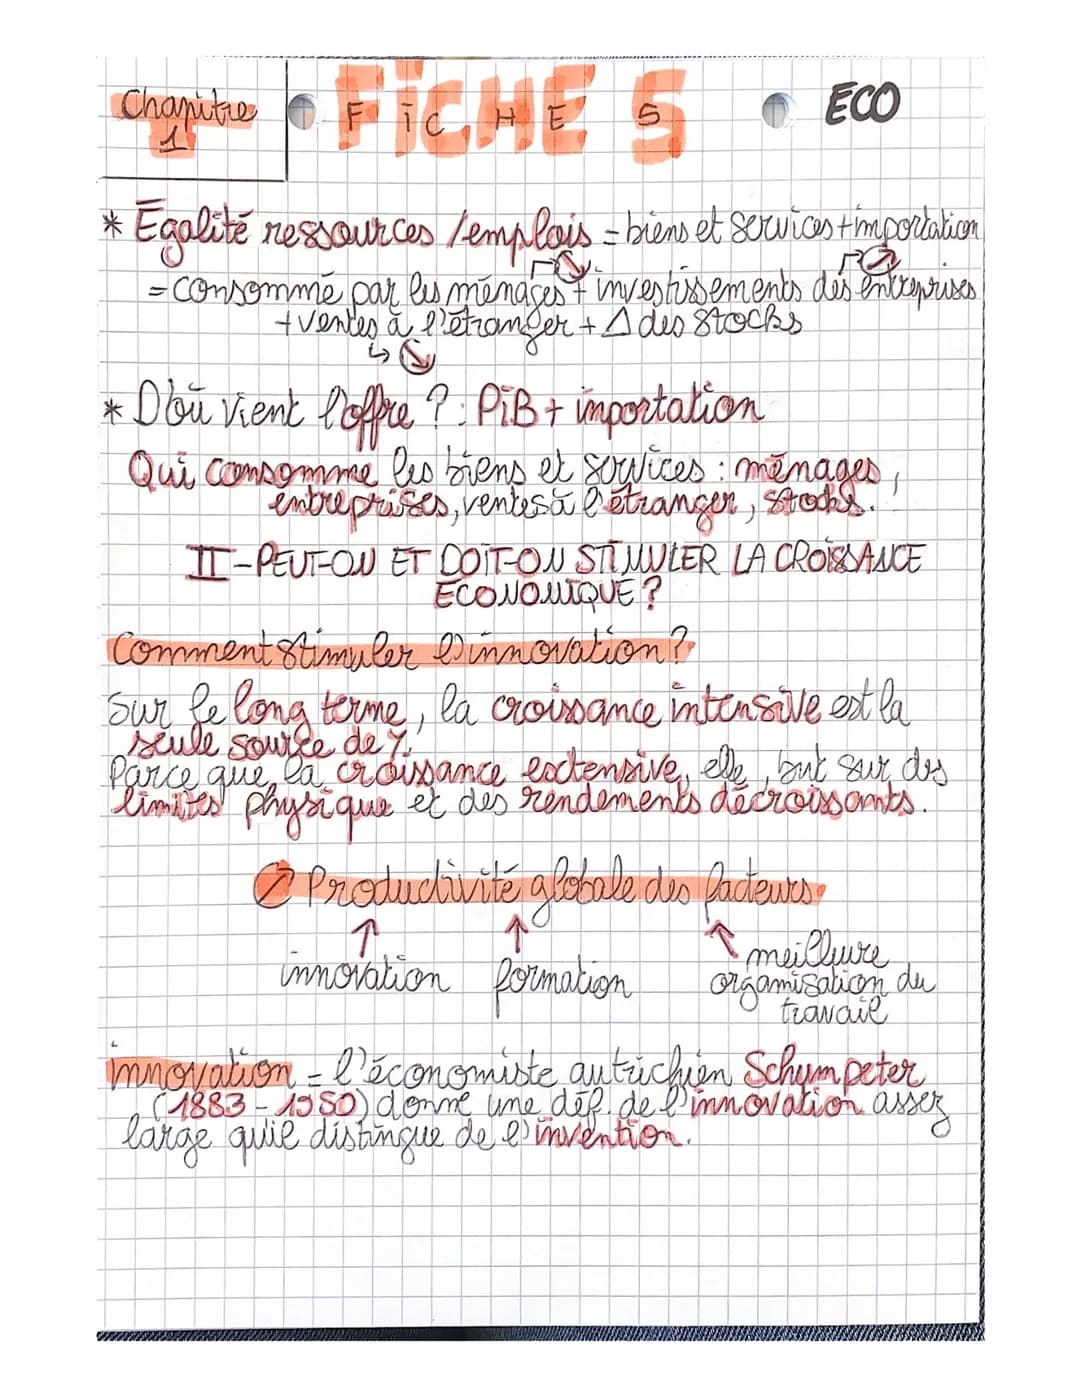 Chapitre
1
FICHE 5
F I C H E 5
ECO
* Egalité ressources / emplois = biens et services + importation
= consommé par les ménages + investissements des entreprises
+ ventes à l'étranger + Δ des stocks
* D'où vient l'offre ? : PIB + importation
Qui consomme les biens et services : ménages,
entreprises, ventes à l'étranger, stocks.
II - PEUT-ON ET DOIT-ON STIMULER LA CROISSANCE
ECONOMIQUE ?
Comment stimuler l'innovation ?
Sur le long terme, la croissance intensive est la
seule source de
Parce que la croissance extensive, elle, but sur des
limites physique et des rendements décroissants.
↗ Productivité globale des facteurs
↑ ↑ ↑
innovation formation meilleure
organisation du
travail
innovation = l'économiste autrichien Schumpeter
(1883 - 1950) donne une déf. de l'innovation assez
large qu'il distingue de l'invention.